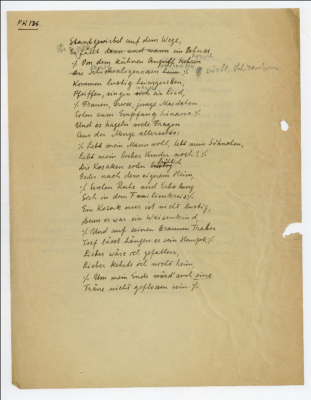 PK 136.
Staub gewirbelt auf dem Wege,
fällt dann und wann ein Schuss.
% Von dem kühnen Angriff kehren
die Schicksalsgenossen heim %
Kommen lustig heimgeritten,
Pfeiffen, singen sich ein Lied,
% Frauen, Greise, junge Mägdelein
Eilen zum Empfang hinaus %
Und es hageln viele Fragen
Aus der Menge allerseits:
% Lebt mein Mann wohl, lebt mein Söhnchen,
Lebt mein lieber Bruder noch? %
Die Kosaken eilen
Reiten nach dem eigenen Heim,
% Wollen Ruhe und Erholung
Sich in dem Familienkreis %
Ein Kosak nur ist nicht lustig,
Denn er war ein Waisenkind
% Und auf seinen braunen Traber
Tief lässt hängen er sein Haupt %
Lieber wäre ich gefallen,
Lieber kehrte ich nicht heim
% Um mein Ende würd auch eine
Träne nicht geflossen sein %